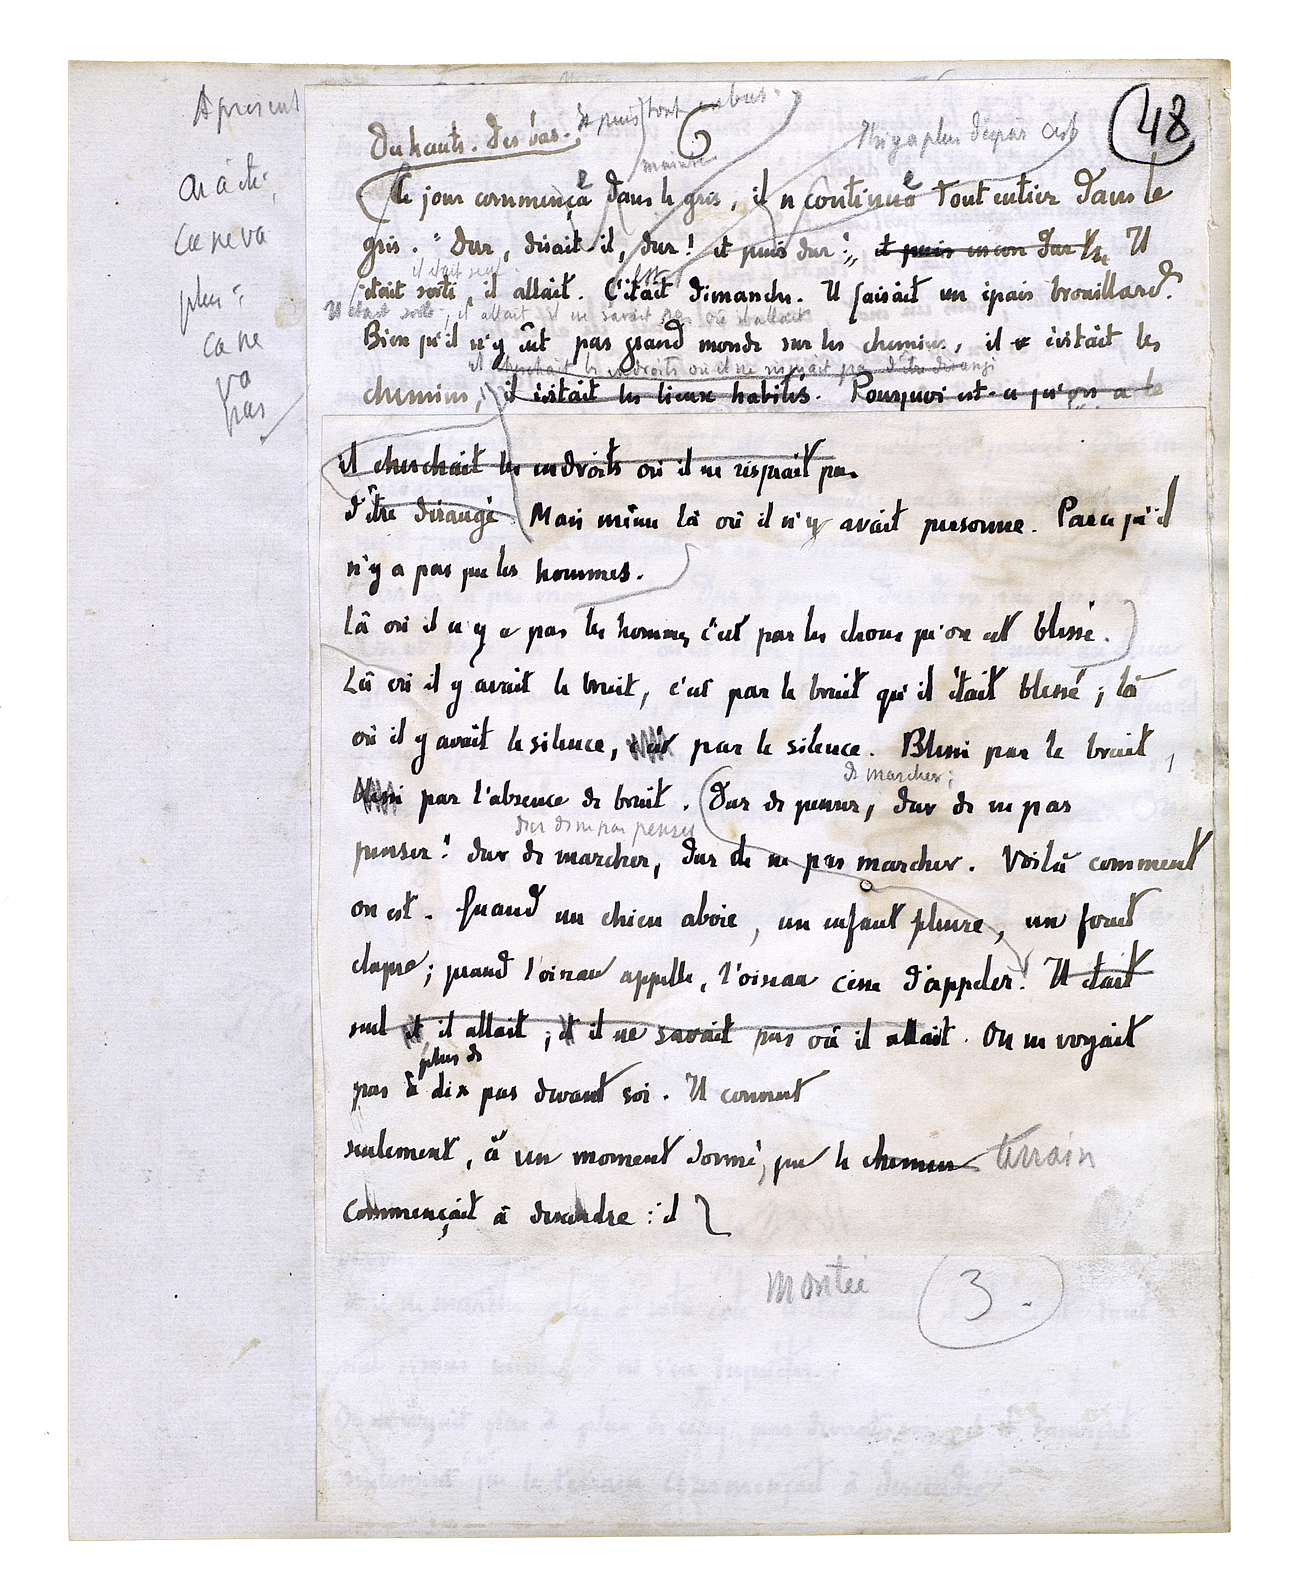 A présent
48
Du hauts. Des bas. Et puis tout en bas.
Il n'y a plus
maintenant
Le jour commença dans le gris, il continua tout entier dans le
gris. " Dur, disait-il, dur! et puis dur! et puis encore dur Il
il était seul
ça ne va
plus;
ça ne
va
pas
était sorti, il allait. C'était Dimanche. Il faisait un épais brouillard.
Il était sorti, il allait il ne savait pas où il allait
Bien qu'il n'y eût pas grand monde sur les chemins, il évitait les
il cherchait les endroits où il ne risquait pas d'être dérangé
chemins, il évitait les lieux habités. Pourquoi est-ce qu'on a le
il cherchait les endroits où il ne risquait pas
d'être dérangé. Mais même là où il n'y avait personne. Parce qu'il
n'y a pas que les hommes.
Là où il n'y a pas les hommes, c'est par les choses qu'on est blessé.
Là où il y avait le bruit, c'est par le bruit qu'il était blessé; là
où il y avait le silence, par le silence. Blessé par le bruit,
de marcher;
blessé par l'absence de bruit. Dur de penser, dur de ne pas
dur de ne pas penser
penser! dur de marcher, dur de ne pas marcher. Voilà comment
on est. Quand un chien aboie, un enfant pleure, un fouet
claque; quand l'oiseau appelle, l'oiseau cesse d'appeler. Il était
seul et il allait; et il ne savait pas où il allait. On ne voyait
plus de
pas à dix pas devant soi. Il connut
seulement, à un moment donné, que le chemin terrain
commençait à descendre: il
Montée
3.